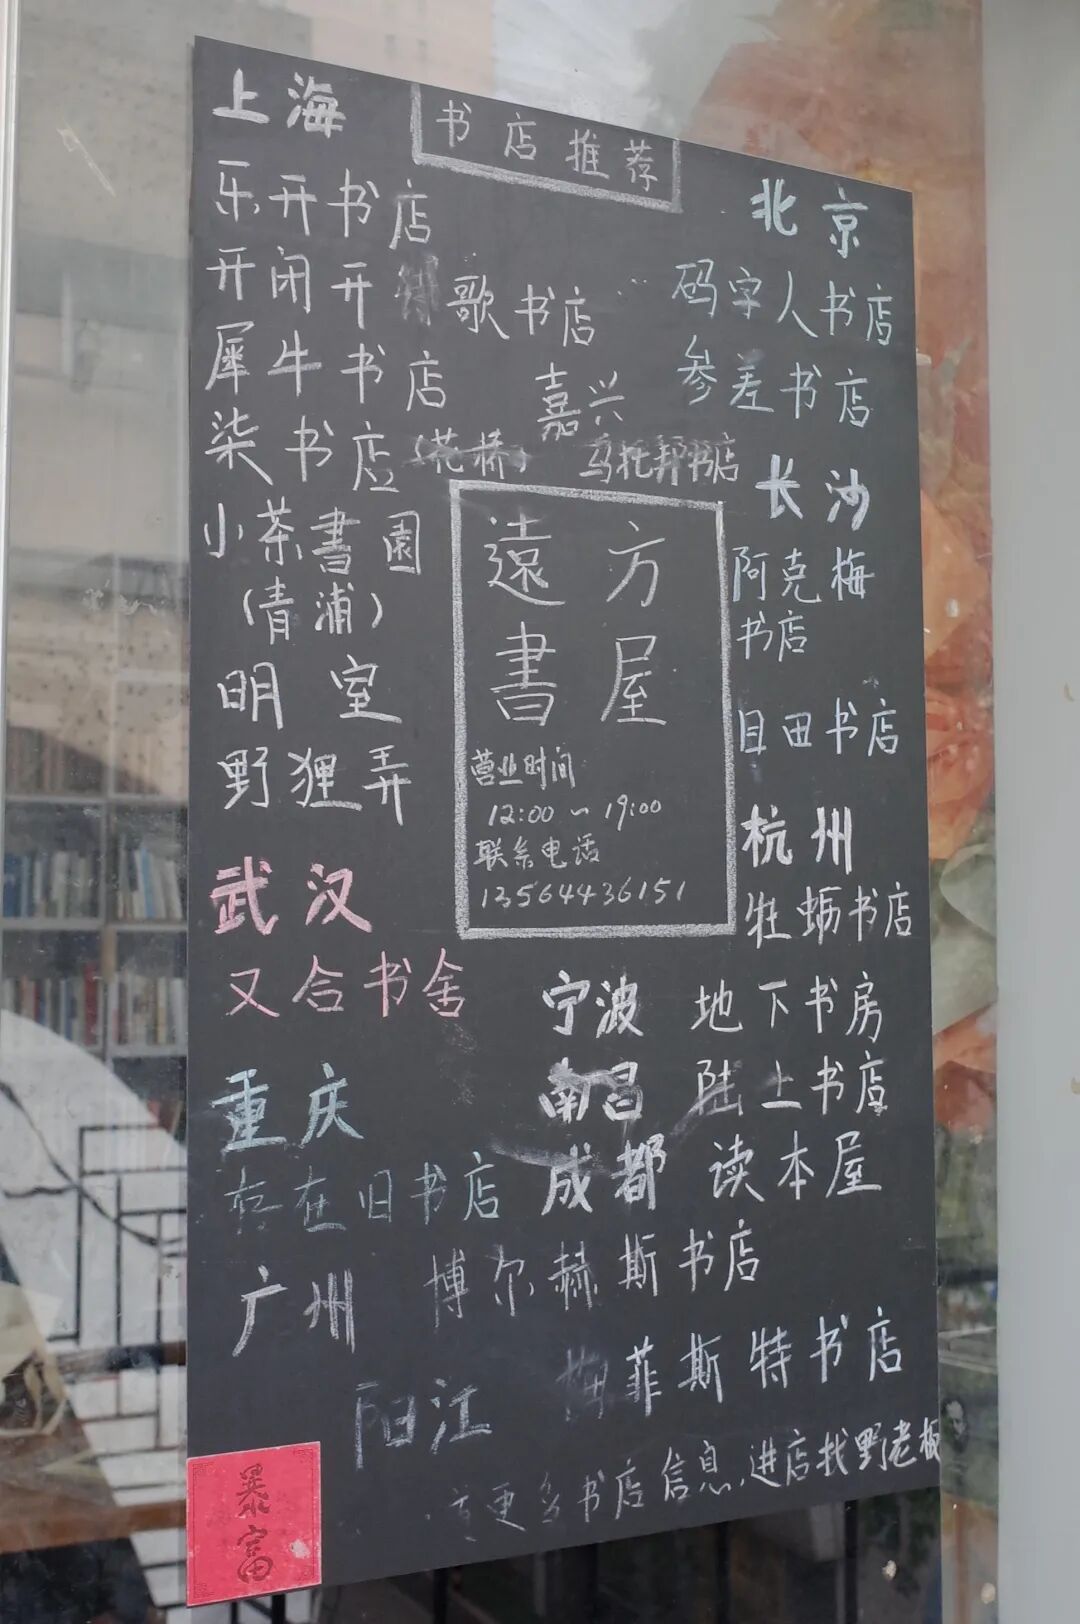 书店推荐
上海
乐开书店
开闭开
歌书店
犀牛书店
柒书店(花桥)
小茶書園
(青浦)
明室
野狸弄
嘉兴
乌托邦书店
北京
码字人书店
参差书店
长沙
阿克梅
书店
目田书店
杭州
牡蛎书店
遠方
書屋
营业时间
12:00~19:00
联系电话
13564436151
武汉
又合书舍
宁波 地下书房
南昌 陆上书店
成都 读本屋
重庆
存在旧书店
广州 博尔赫斯书店
阳江 梅菲斯特书店
更多书店信息,进店找野老板
暴富